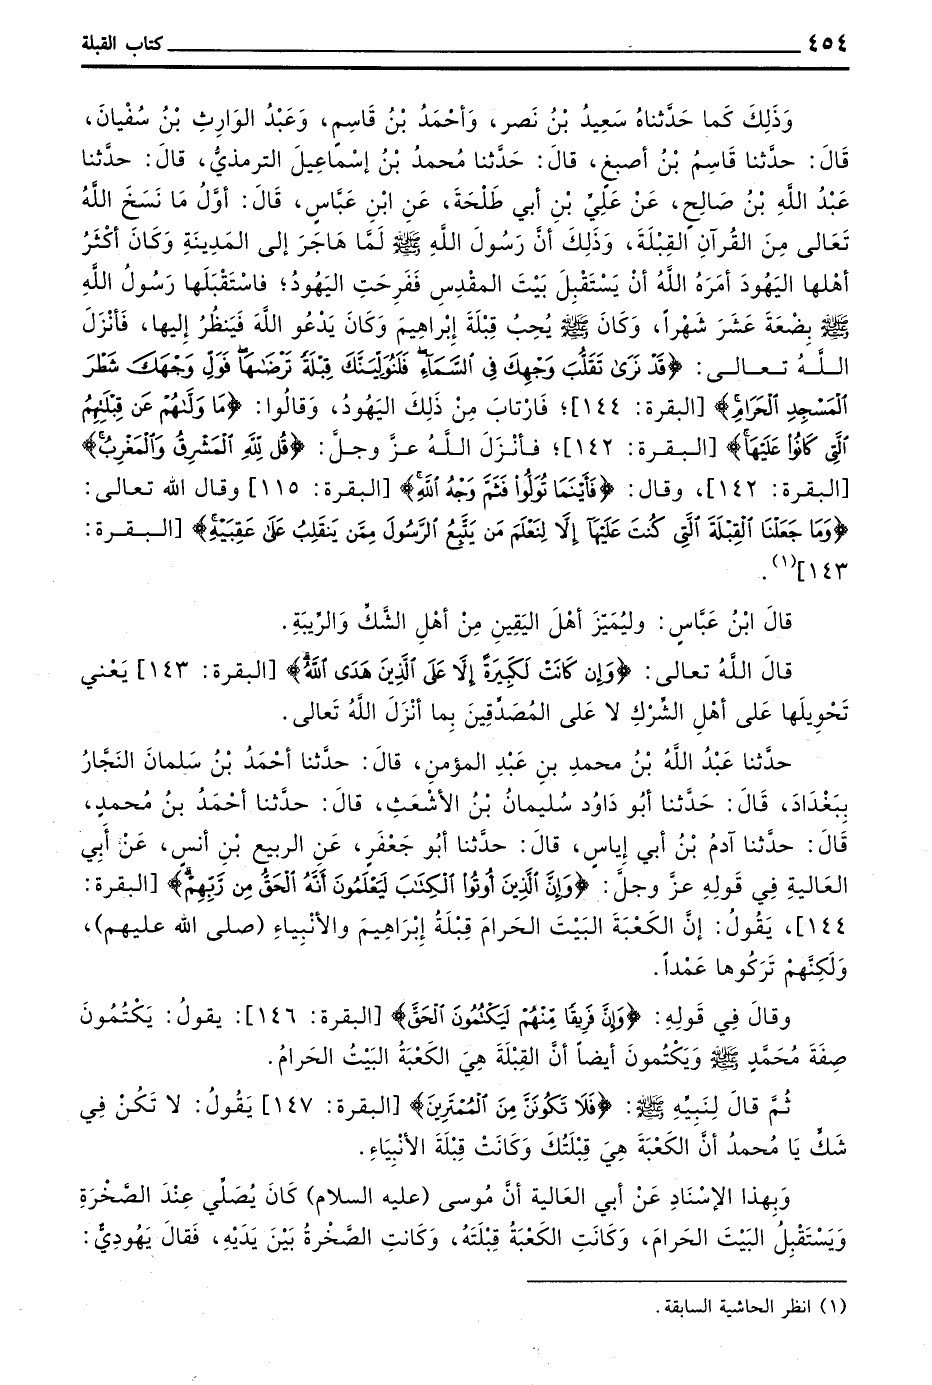 ٤٥٤ كتاب القبلة
وَذَلِكَ كَما حَدَّثناهُ سَعِيدُ بْنُ نَصر، وَأحْمَدُ بْنُ قَاسِمٍ، وَعَبْدُ الوَارِثِ بْنُ سُفْيانَ،
قَالَ: حدَّثنا قَاسِمُ بْنُ أصبغٍ، قالَ: حَدَّثنا مُحمدُ بْنُ إسْماعِيلَ الترمذيُّ، قالَ: حدَّثنا
عَبْدُ اللَّهِ بْنُ صَالِحٍ، عَنْ عَلِيِّ بْنِ أبي طَلْحَةَ، عَنِ ابْنِ عَبَّاسٍ، قَالَ: أوَّلُ مَا نَسَخَ اللَّهُ
تَعَالى مِنَ القُرآنِ القِبْلَةَ، وَذَلِكَ أنَّ رَسُولَ اللَّهِ ﷺ لَمَّا هَاجَرَ إلى المَدِينَةِ وَكَانَ أكْثَرُ
أهْلها اليَهُودَ أمَرَهُ اللَّهُ أنْ يَسْتَقْبِلَ بَيْتَ المقْدِسِ فَفَرِحَتِ اليَهُودُ؛ فاسْتَقْبَلَها رَسُولُ اللَّهِ
ﷺ بِضْعَةَ عَشَرَ شَهْراً، وَكَانَ ﷺ يُحِبُ قِبْلَةَ إبْراهِيمَ وَكَانَ يَدْعُو اللَّهَ فَيَنظُرُ إليها، فَأنْزَلَ
اللَّهُ تعالى: ﴿قَدْ نَرَىٰ تَقَلُّبَ وَجْهِكَ فِي ٱلسَّمَآءِۖ فَلَنُوَلِّيَنَّكَ قِبْلَةً تَرْضَىٰهَاۚ فَوَلِّ وَجْهَكَ شَطْرَ
ٱلْمَسْجِدِ ٱلْحَرَامِۚ﴾ [البقرة: ١٤٤]؛ فَارْتابَ مِنْ ذَلِكَ اليَهُودُ، وَقَالُوا: ﴿مَا وَلَّىٰهُمْ عَن قِبْلَتِهِمُ
ٱلَّتِي كَانُوا۟ عَلَيْهَاۚ﴾ [البقرة: ١٤٢]؛ فأنْزَلَ اللَّهُ عزَّ وجلَّ: ﴿قُل لِّلَّهِ ٱلْمَشْرِقُ وَٱلْمَغْرِبُۚ﴾
[البقرة: ١٤٢]، وقال: ﴿فَأَيْنَمَا تُوَلُّوا۟ فَثَمَّ وَجْهُ ٱللَّهِۚ﴾ [البقرة: ١١٥] وقال الله تعالى:
﴿وَمَا جَعَلْنَا ٱلْقِبْلَةَ ٱلَّتِي كُنتَ عَلَيْهَآ إِلَّا لِنَعْلَمَ مَن يَتَّبِعُ ٱلرَّسُولَ مِمَّن يَنقَلِبُ عَلَىٰ عَقِبَيْهِۚ﴾ [البقرة:
١٤٣](١).
قالَ ابْنُ عَبَّاسٍ: وليُمَيّزَ أهْلَ اليَقِينِ مِنْ أهْلِ الشَّكِّ وَالرِّيبَةِ.
قالَ اللَّهُ تعالى: ﴿وَإِن كَانَتْ لَكَبِيرَةً إِلَّا عَلَى ٱلَّذِينَ هَدَى ٱللَّهُۗ﴾ [البقرة: ١٤٣] يَعْني
تَحْوِيلَها عَلى أهْلِ الشِّرْكِ لا عَلى المُصَدِّقِينَ بِما أنْزَلَ اللَّهُ تَعالى.
حدَّثنا عَبْدُ اللَّهُ بْنُ محمدِ بنِ عَبْدِ المؤمنِ، قالَ: حدَّثنا أحْمَدُ بْنُ سَلمانَ النَجَّارُ
بِبَغْدَادَ، قَالَ: حَدَّثنا أبُو دَاوُد سُليمانُ بْنُ الأشْعَثِ، قالَ: حدَّثنا أحْمَدُ بنُ مُحمدٍ،
قَالَ: حدَّثنا آدمُ بْنُ أبي إياسٍ، قالَ: حدَّثنا أبُو جَعْفَرٍ، عَنِ الربيع بْنِ أنسٍ، عَنْ أَبي
العَاليةِ فِي قَولِهِ عزَّ وجلَّ: ﴿وَإِنَّ ٱلَّذِينَ أُوتُوا۟ ٱلْكِتَٰبَ لَيَعْلَمُونَ أَنَّهُ ٱلْحَقُّ مِن رَّبِّهِمْۗ﴾ [البقرة:
١٤٤]، يَقُولُ: إنَّ الكَعْبَةَ البَيْتَ الحَرامَ قِبْلَةُ إبْرَاهِيمَ والأنْبِياءِ (صلى الله عليهم)،
وَلَكِنَّهمْ تَرَكُوها عَمْداً.
وقالَ فِي قَولِهِ: ﴿وَإِنَّ فَرِيقًا مِّنْهُمْ لَيَكْتُمُونَ ٱلْحَقَّ﴾ [البقرة: ١٤٦]: يقولُ: يَكْتُمُونَ
صِفَةَ مُحَمَّدٍ ﷺ وَيَكْتُمونَ أيضاً أنَّ القِبْلَةَ هِيَ الكَعْبَةُ البَيْتُ الحَرامُ.
ثُمَّ قالَ لِنَبيِّهِ ﷺ: ﴿فَلَا تَكُونَنَّ مِنَ ٱلْمُمْتَرِينَ﴾ [البقرة: ١٤٧] يَقُولُ: لا تَكُنْ فِي
شَكٍّ يَا مُحمدُ أنَّ الكَعْبَةَ هِيَ قِبْلَتُكَ وَكَانَتْ قِبْلَةَ الأنْبِيَاءِ.
وَبِهذا الإسْنَادِ عَنْ أبي العَالية أنَّ مُوسى (عليه السلام) كَانَ يُصَلِّي عِنْدَ الصَّخْرَةِ
وَيَسْتَقْبِلُ البَيْتَ الحَرامَ، وَكَانَتِ الكَعْبَةُ قِبْلَتَهُ، وَكَانتِ الصَّخْرةُ بَيْنَ يَدَيْهِ، فَقالَ يَهُودِيٌّ:
(١) انظر الحاشية السابقة.